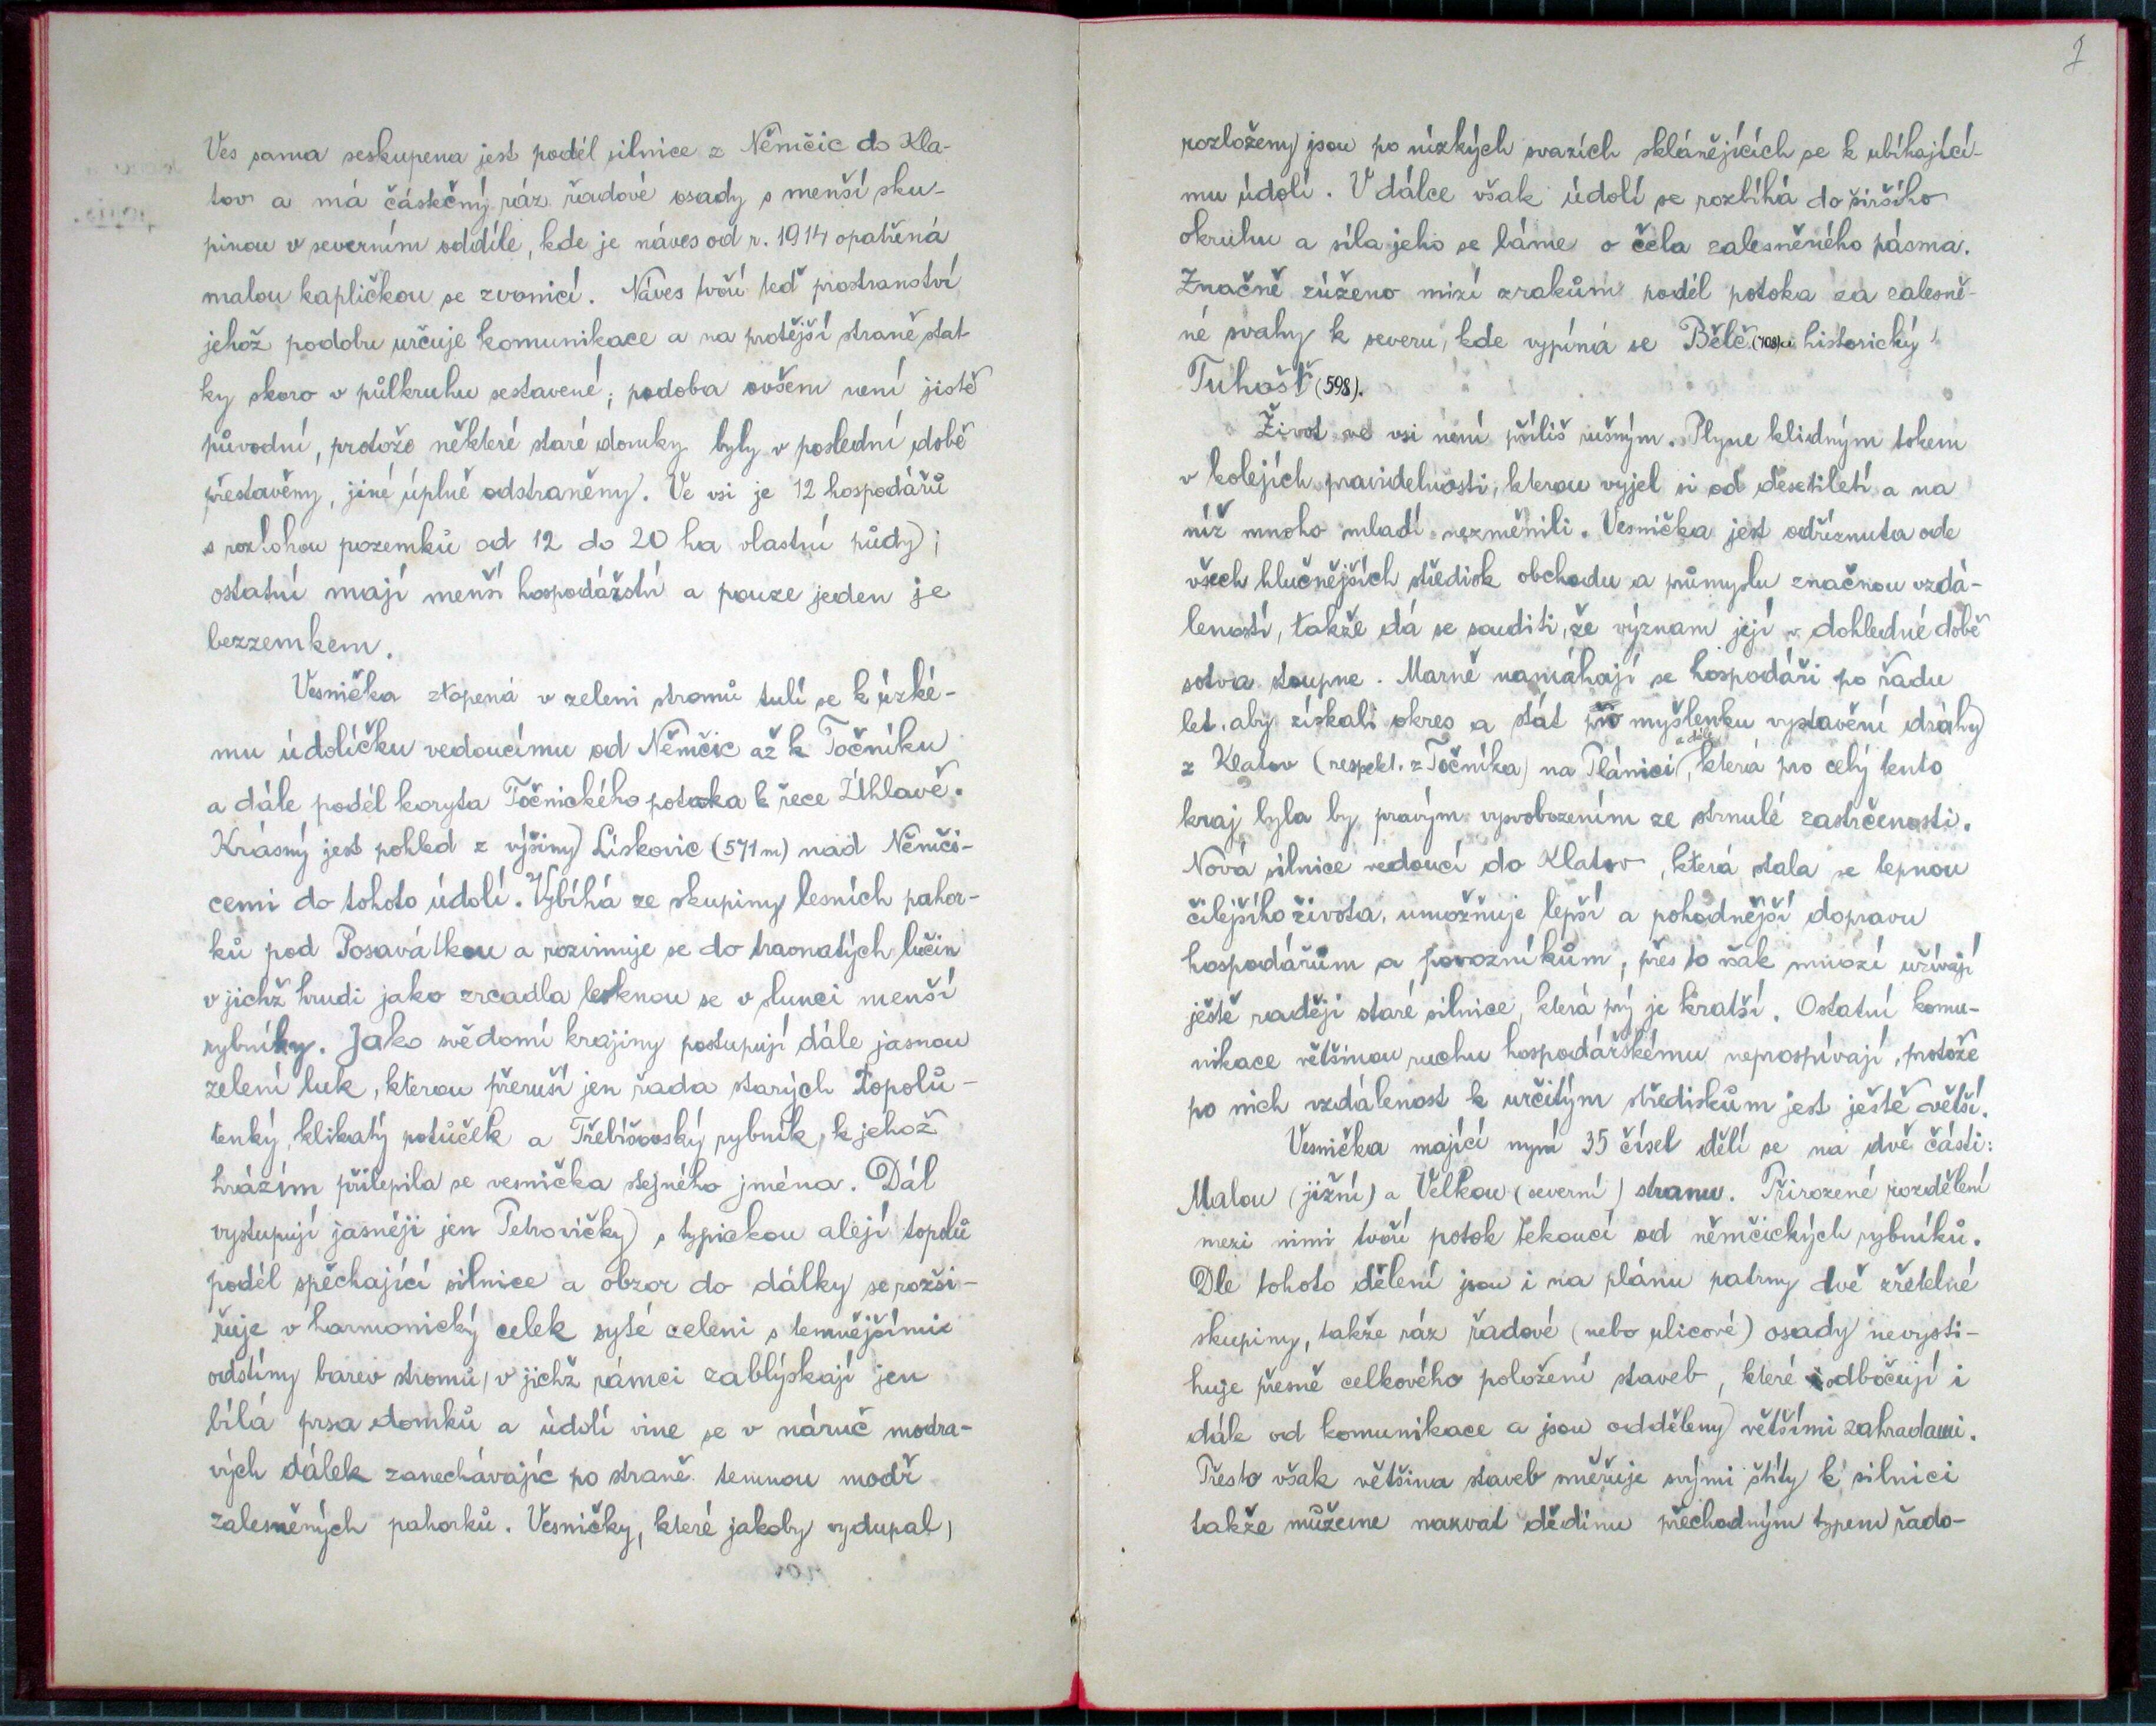 Ves sama seskupena jest podél silnice z Němčic do Kla-
tov a má částečný ráz řadové osady s menší sku-
pinou v severním oddíle, kde je náves od r. 1914 opatřená
malou kapličkou se zvonicí. Náves tvoří teď prostranství
jehož podobu určuje komunikace a na protější straně stat
ky skoro v půlkruhu sestavené; podoba ovšem není jistě
původní, protože některé staré domky byly v poslední době
přestavěny, jiné úplně odstraněny. Ve vsi je 12 hospodářů
s rozlohou pozemků od 12 do 20 ha vlastní půdy;
ostatní mají menší hospodářství a pouze jeden je
bezzemkem.
Vesnička ztopená v zeleni stromů tulí se k úzké-
mu údolíčku vedoucímu od Němčic až k Točníku
a dále podél koryta Točnického potoka k řece Úhlavě.
Krásný jest pohled z výšiny Lískovic (571 m) nad Němči-
cemi do tohoto údolí. Vybíhá ze skupiny lesních pahor-
ků pod Posavátkou a rozvinuje se do travnatých lučin
v jichž hrudi jako zrcadla lesknou se v slunci menší
rybníky. Jako svědomí krajiny postupují dále jasnou
zelení luk, kterou přeruší jen řada starých topolů-
tenký, klikatý potůček a Třebíšovský rybník, k jehož
hrázím přilepila se vesnička stejného jména. Dál
vystupují jasněji jen Petrovičky s typickou alejí topolů
podél spěchající silnice a obzor do dálky se rozši-
řuje v harmonický celek syté zeleni s temnějšími
odstíny barev stromů, v jichž rámci zablýskají jen
bílá prsa domků a údolí vine se v náruč modra-
vých dálek zanechávajíc po straně temnou modř
zalesněných pahorků. Vesničky, které jakoby vydupal,
rozloženy jsou po nízkých svazích sklánějících se k ubíhající-
mu údolí. V dálce však údolí se rozbíhá do širšího
okruhu a síla jeho se láme o čela zalesněného pásma.
Značně zúženo mizí zrakům podél potoka za zalesně-
né svahy k severu, kde vypíná se Bělč historický
Tuhošť (598).
Život ve vsi není příliš rušným. Plyne klidným tokem
v kolejích pravidelnosti, kterou vyjel si od desetiletí a na
níž mnoho mladí nezměnili. Vesnička jest odříznuta ode
všech hlučnějších středisk obchodu a průmyslu značnou vzdá-
leností, takže dá se souditi, že význam její v dohledné době
sotva stoupne. Marně namáhají se hospodáři po řadu
let, aby získali okres a stát pro myšlenku vystavění dráhy
z Klatov (respekt. z Točníka) na Plánici a dále, která pro celý tento
kraj byla by pravým vysvobozením ze strnulé zastrčenosti.
Nová silnice vedoucí do Klatov, která stala se tepnou
čilejšího života, umožňuje lepší a pohodnější dopravu
hospodářům a povozníkům, přes to však mnozí užívají
ještě raději staré silnice, která prý je kratší. Ostatní komu-
nikace většinou ruchu hospodářskému neprospívají, protože
po nich vzdálenost k určitým střediskům jest ještě větší.
Vesnička mající nyní 35 čísel dělí se na dvě části:
Malou (jižní) a Velkou (severní) stranu. Přirozené rozdělení
mezi nimi tvoří potok tekoucí od němčických rybníků.
Dle tohoto dělení jsou i na plánu patrny dvě zřetelné
skupiny, takže ráz řadové (nebo ulicové) osady nevysti-
huje přesně celkového položení staveb, které odbočují i
dále od komunikace a jsou odděleny většími zahradami.
Přesto však většina staveb směřuje svými štíty k silnici
takže můžeme nazvat dědinu přechodným typem řado-